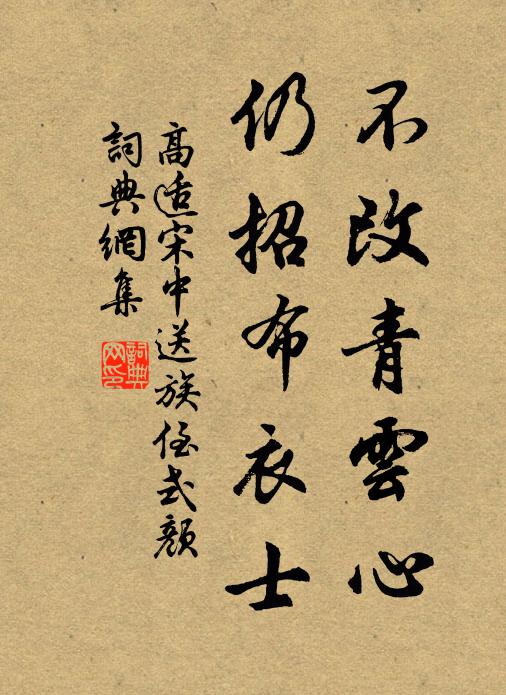 不改青雲心
仍招布衣士
高适宋中送族侄式顏
詞典網集
詞典網印